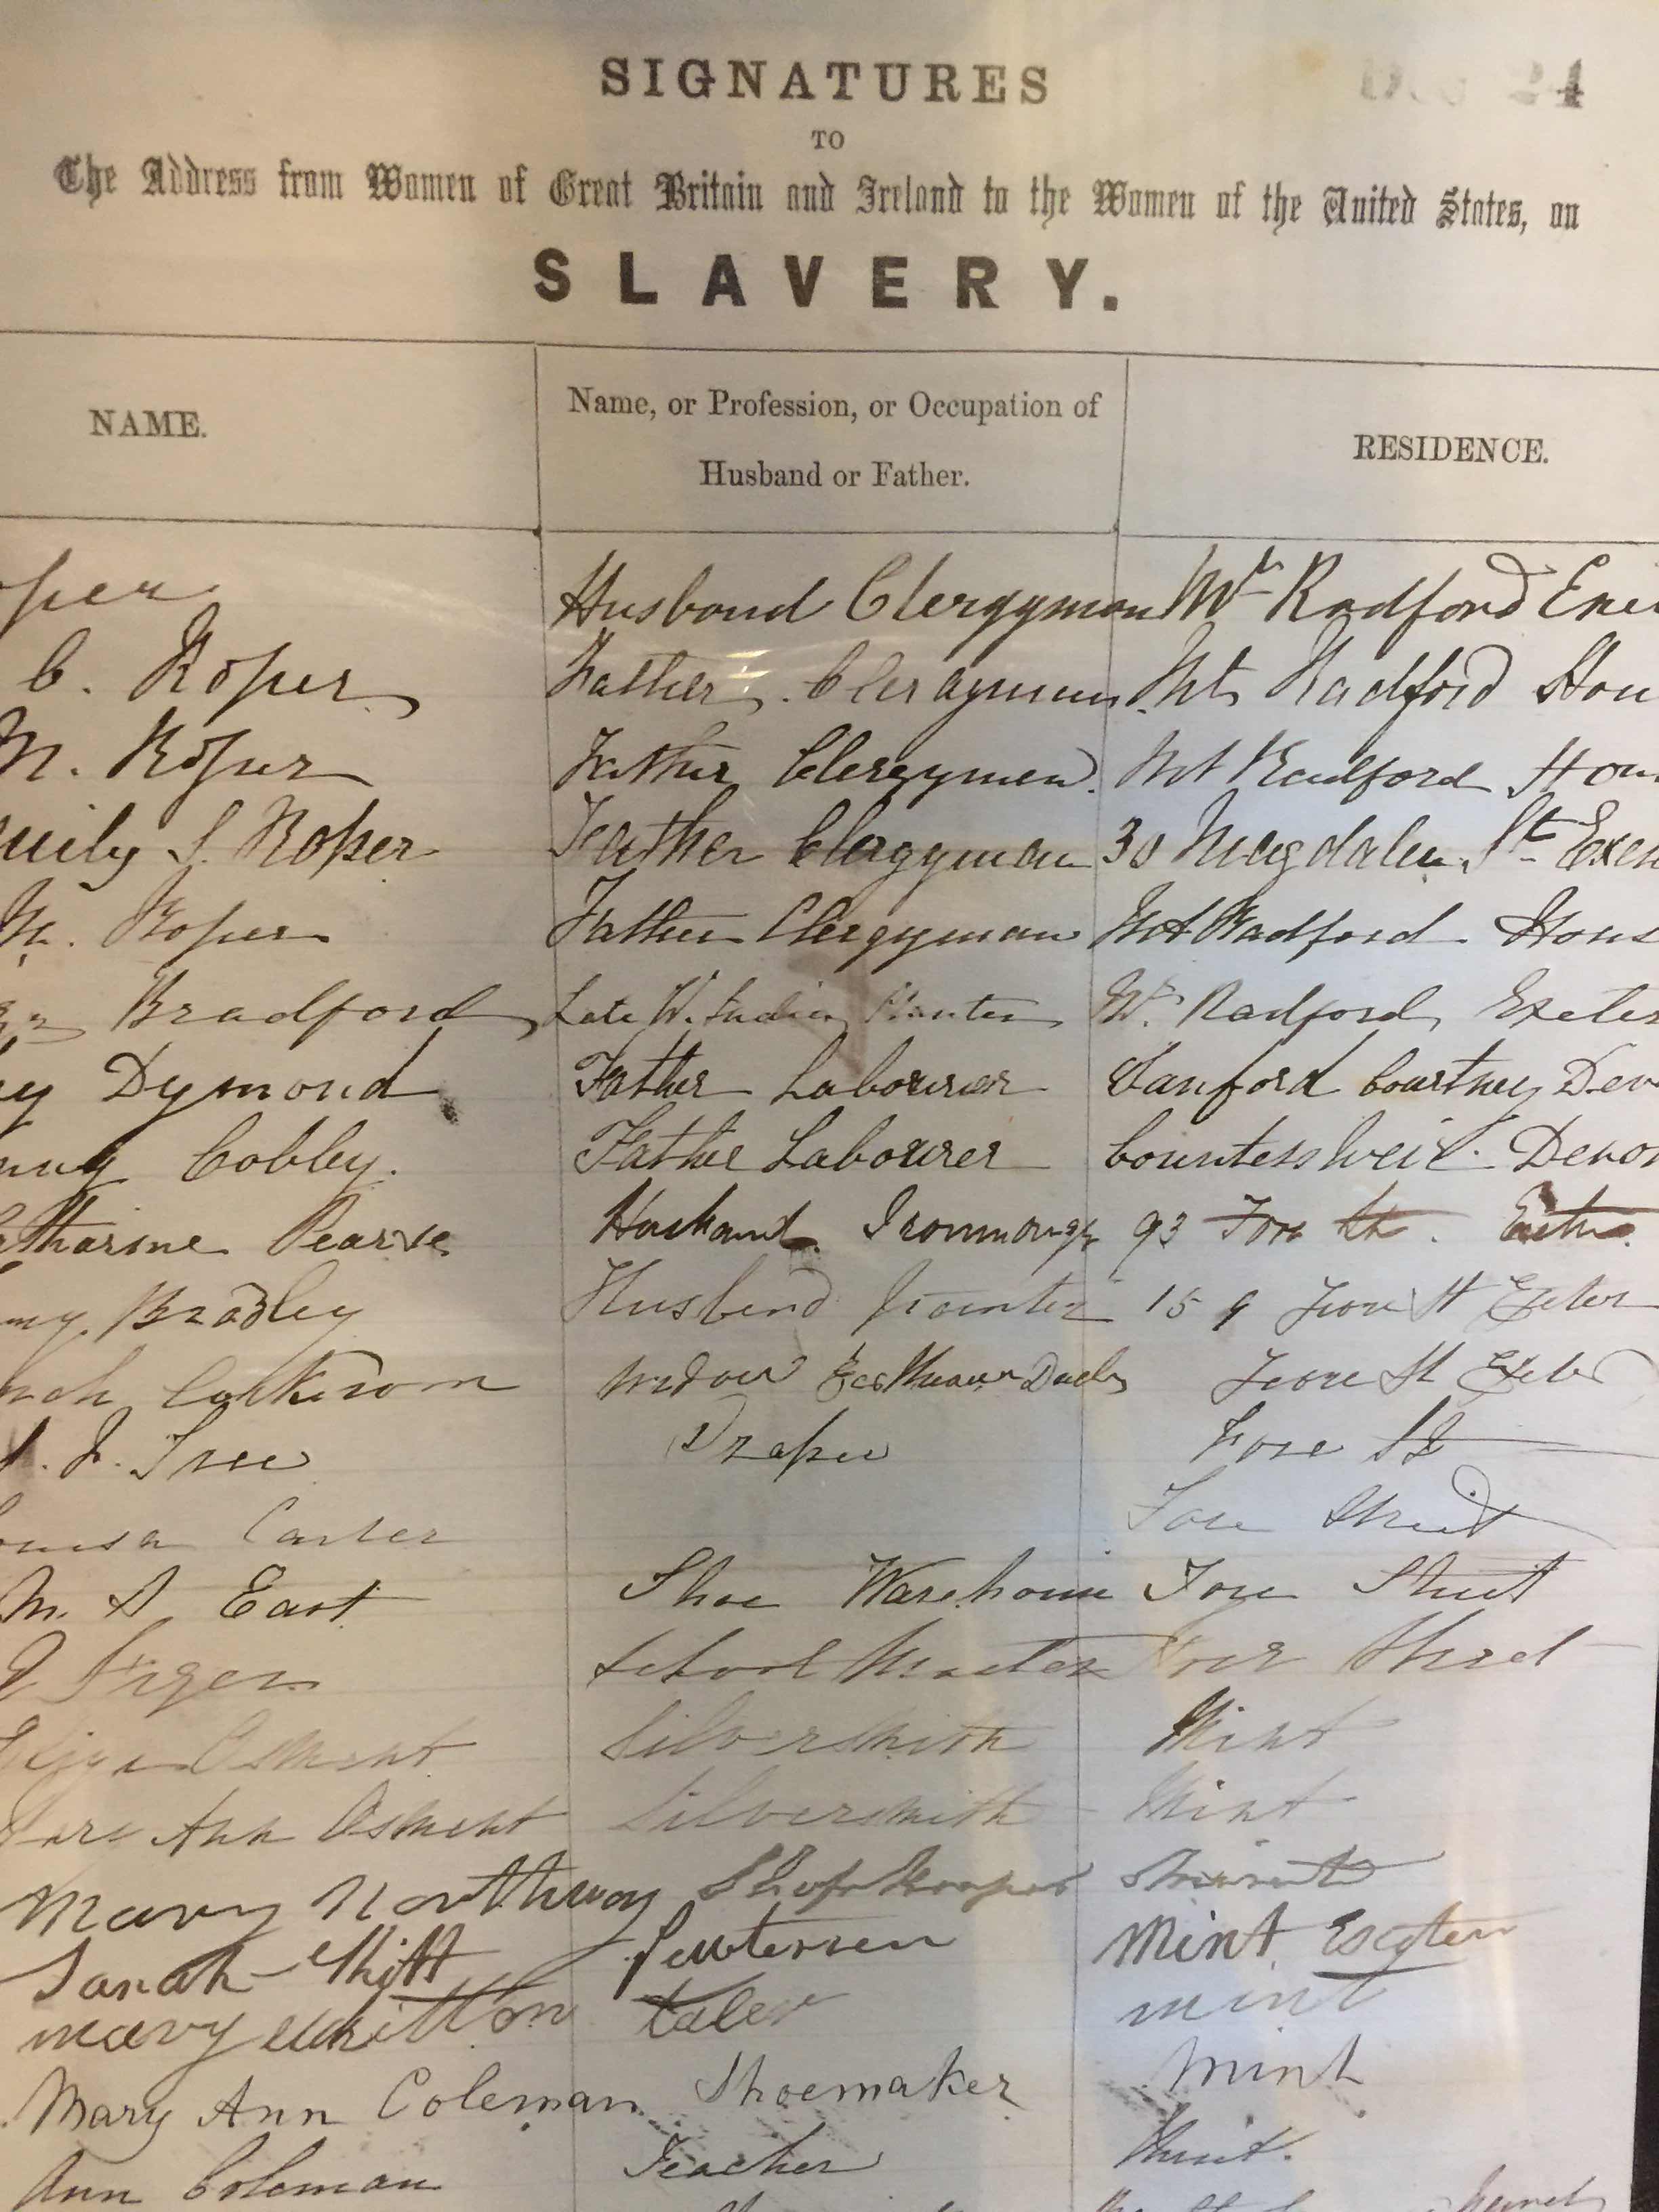 24
SIGNATURES
TO
The Address from Women of Great Britain and Ireland to the Women of the United States, on
SLAVERY.
NAME.
Name, or Profession, or Occupation of
Husband or Father.
RESIDENCE.
oper Husband Clergyman Mt Radford Exe
C. Roper Father Clergyman Mt Radford Hou
M. Roper Father Clergyman Mt Radford Hou
mily S. Roper Father Clergyman 30 Magdalen St Exe
M. Roper Father Clergyman Mt Radford Hous
Bradford Late W. India Planter Mt Radford Exeter
y Dymond Father Labourer Sanford Courtney Dev
Cobley. Father Labourer Countessweir Devon
atharine Pearse Husband Ironmonger 93 Fore St. Exeter
Bradley Husband 159 Fore St Exeter
Widow Fore St Exeter
J. Tree Draper Fore St
ouisa Carter Fore Street
M. S East Shoe Warehouse Fore Street
School Master Fore Street
Eliza Osment Silversmith Mint
Ann Osment Silversmith Mint
Mary Northway Shopkeeper
Sarah Pewterer Mint Exeter
mary mint
Mary Ann Coleman Shoemaker Mint
Ann Coleman Teacher Mint.